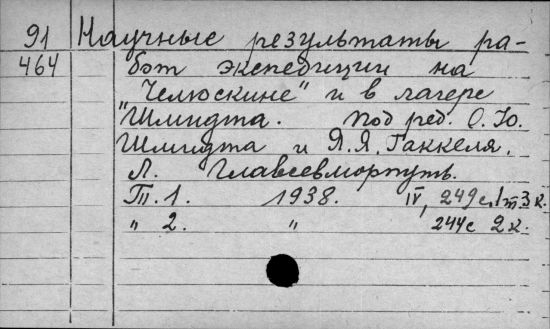 91 Научные результаты ра-
464 бот экспедиции на
Челюскине" и в лагере
"Шмидта. Под ред. О. Ю.
Шмидта и Я. Я. Гаккеля.
Л. Главсевморпуть.
Т. 1. 1938. IV, 249 с,
" 2. " 244 с 2 к.